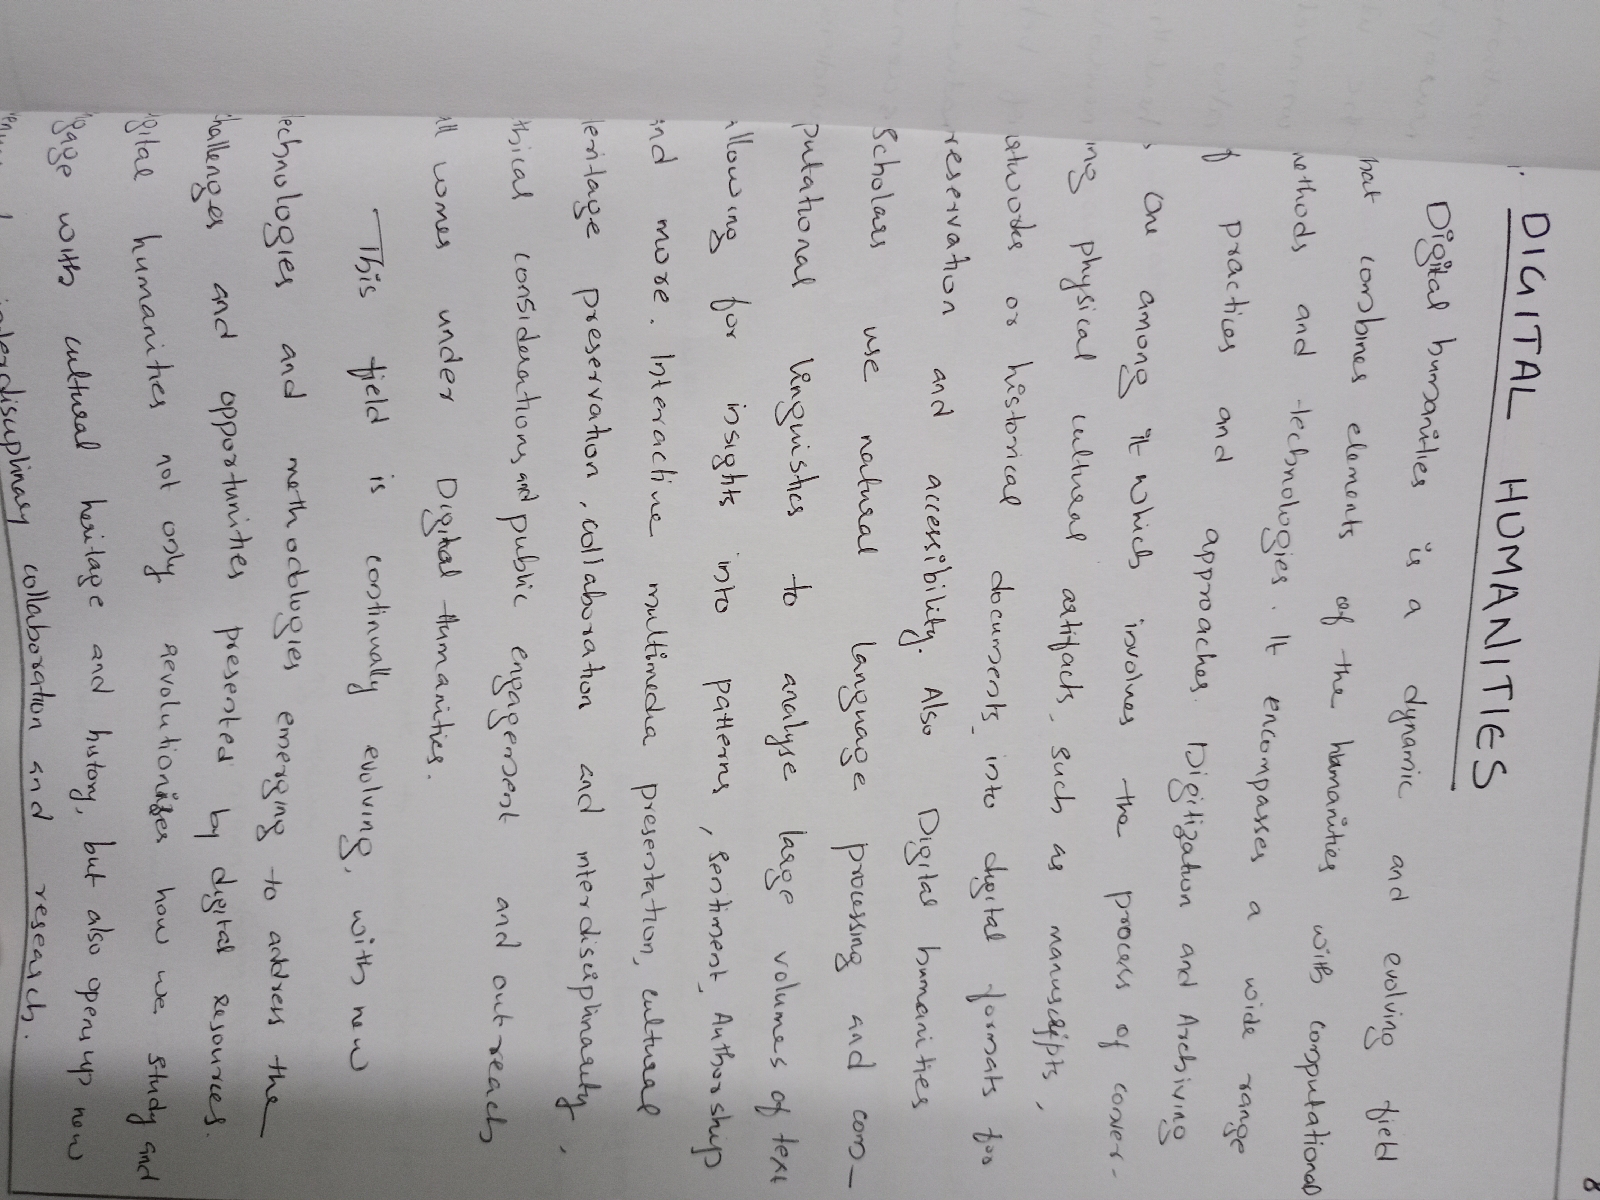 8
1. DIGITAL HUMANITIES
Digital humanities is a dynamic and evolving field
hat combines elements of the humanities with computational
nethods and technologies. It encompasses a wide range
f practices and approaches. Digitization and Archiving
, one among it which involves the process of conver-
ing physical cultural artifacts, such as manuscripts,
artworks or historical documents, into digital formats for
reservation and accessibility. Also Digital humanities
Scholars use natural language processing and com-
putational linguistics to analyse large volumes of text
allowing for insights into patterns, sentiment, Authorship
and more. Interactive multimedia presentation, cultural
heritage preservation, collaboration and interdisciplinarity,
thical considerations and public engagement and outreach
all comes under Digital Humanities.
This field is continually evolving, with new
technologies and methodologies emerging to address the
challenges and opportunities presented by digital resources.
igital humanities not only revolutionizes how we study and
ngage with cultural heritage and history, but also opens up new
interdisciplinary collaboration and research.